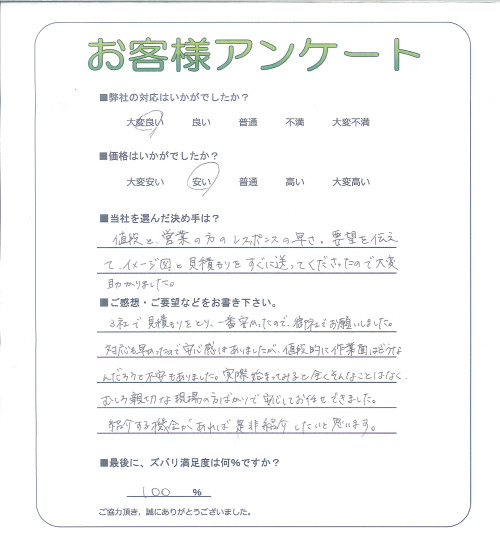 お客様アンケート
■弊社の対応はいかがでしたか?
大変良い 良い 普通 不満 大変不満
■価格はいかがでしたか?
大変安い 安い 普通 高い 大変高い
■当社を選んだ決め手は?
値段と、営業の方のレスポンスの早さ。要望を伝え
て、イメージ図と見積もりをすぐに送ってくださったので大変
助かりました。
■ご感想・ご要望などをお書き下さい。
3社で見積もりをとり、一番安かったので、御社にお願いしました。
対応も早かったので安心感はありましたが、値段的に作業面はどうな
んだろうと不安もありました。実際始まってみると全くそんなことはなく、
むしろ親切な現場の方ばかりで安心してお任せできました。
紹介する機会があれば是非紹介したいと思います。
■最後に、ズバリ満足度は何%ですか?
100 %
ご協力頂き、誠にありがとうございました。